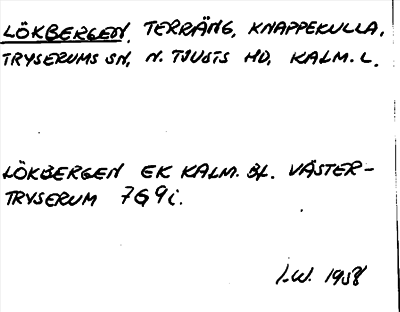 LÖKBERGEN. TERRÄNG, KNAPPEKULLA,
TRYSERUMS SN, N. TJUSTS HD, KALM. L.
LÖKBERGEN EK KALM. BL. VÄSTER-
TRYSERUM 7G9i.
I.W. 1958